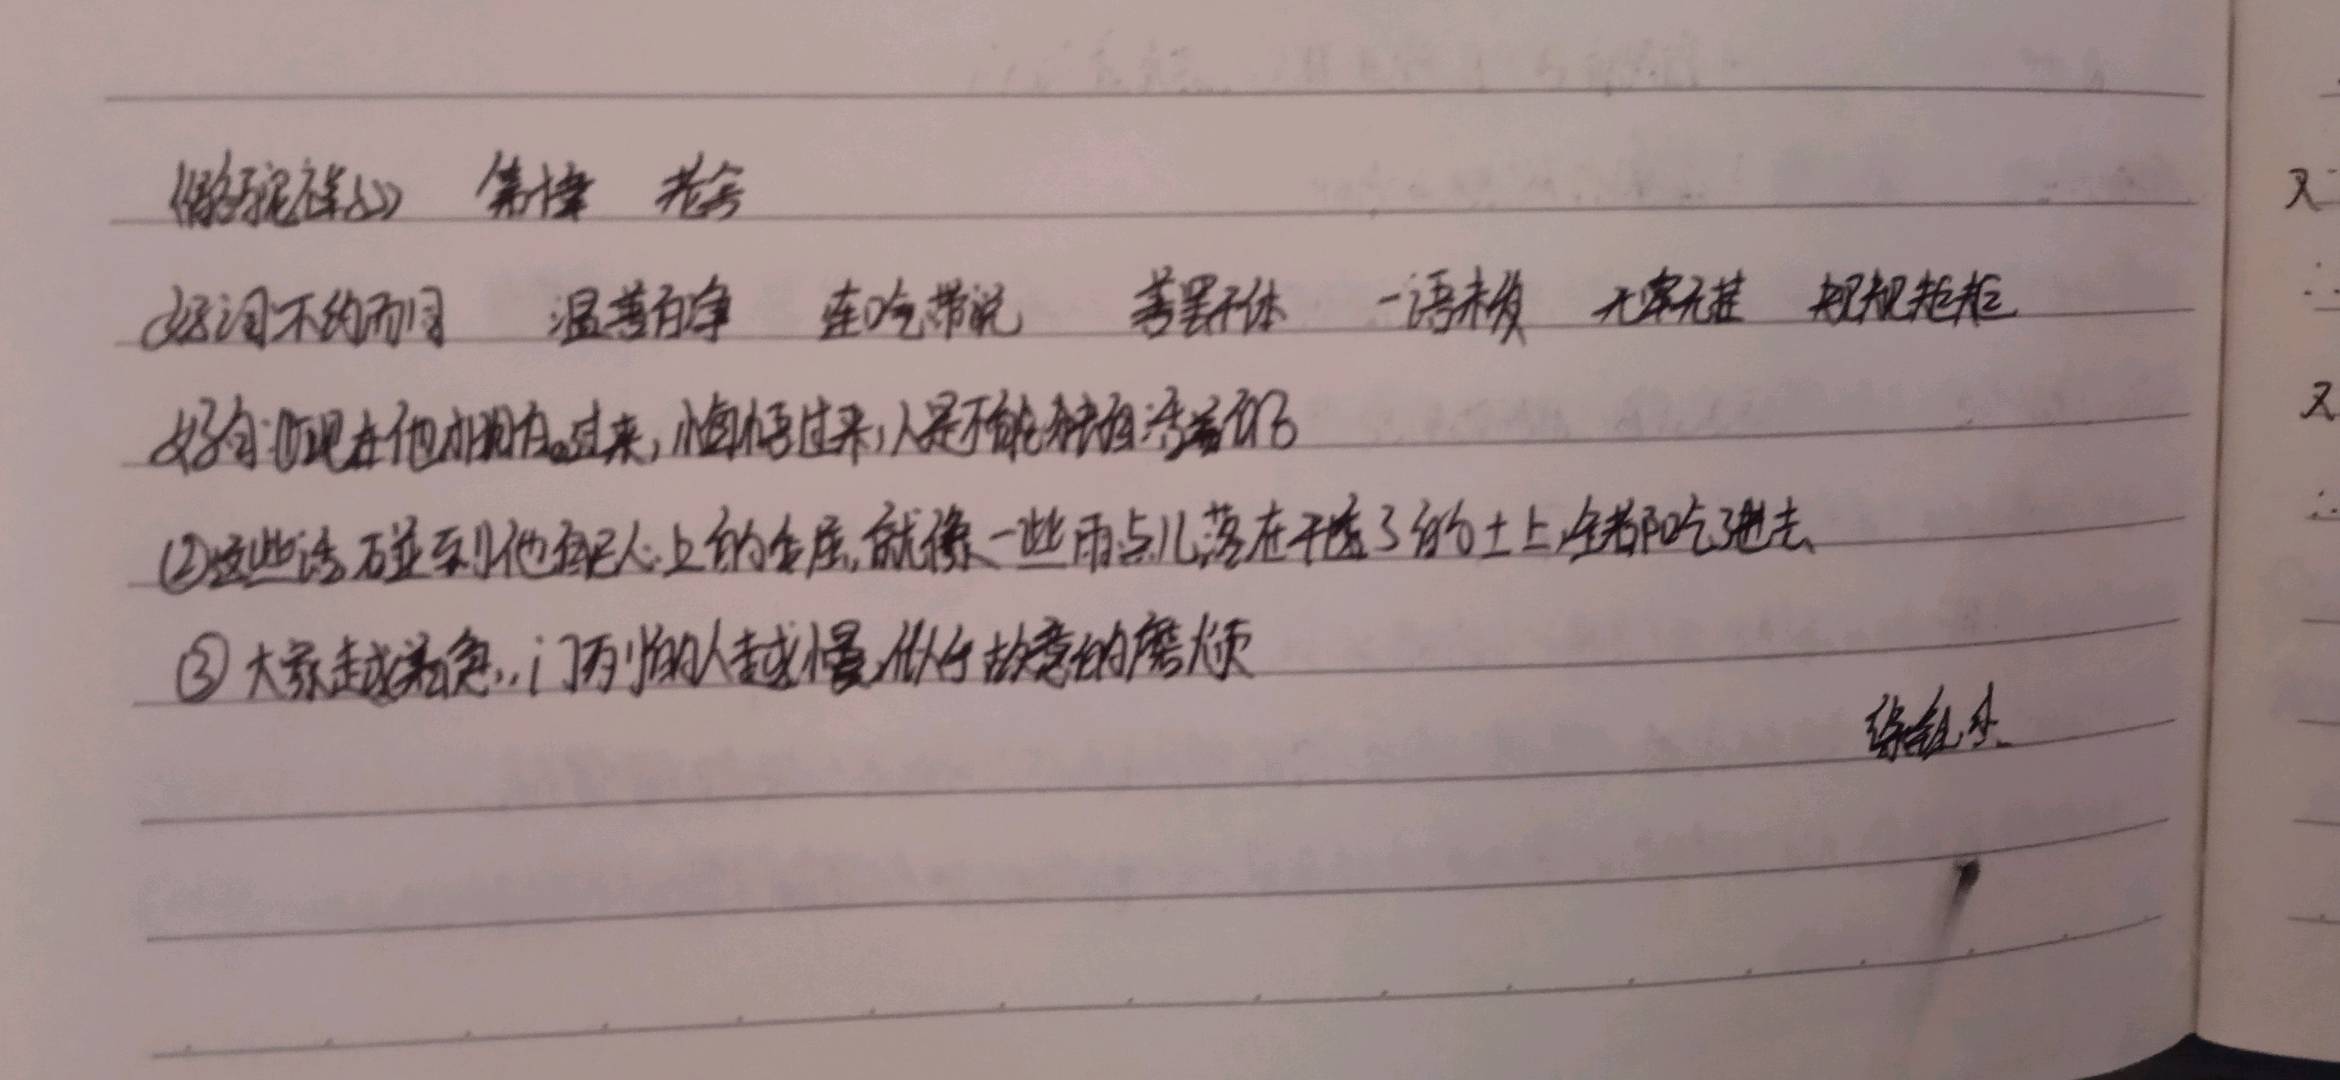 《骆驼祥子》 第十章 老舍
好词:不约而同 温善有净 连吃带说 善罢干休 一语未发 无牵无挂 规规矩矩
好句:①现在他才明白过来,悔悟过来,人是不能独自活着的
②这些话碰到他 人上的 ,就像一些雨点儿落在干透了的土上,全都吃了进去
③大家越着急,门外的人越慢,似乎故意的磨烦
又
又